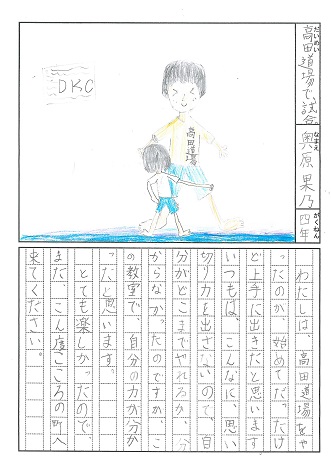 だいめい
高田道場で試合。
なまえ
奥原果乃
がくねん
四年
DKC
高田道場
わたしは、高田道場をや
ったのが、始めてだったけ
ど上手に出きたと思います
いつもは、こんなに、思い
切り力を出さないので、自
分がどこまでやれるか、分
からなかったのですが、こ
の教室で、自分の力が分か
ったと思います。
とても楽しかったので、
まだ、こん度こころの町へ
来てください。